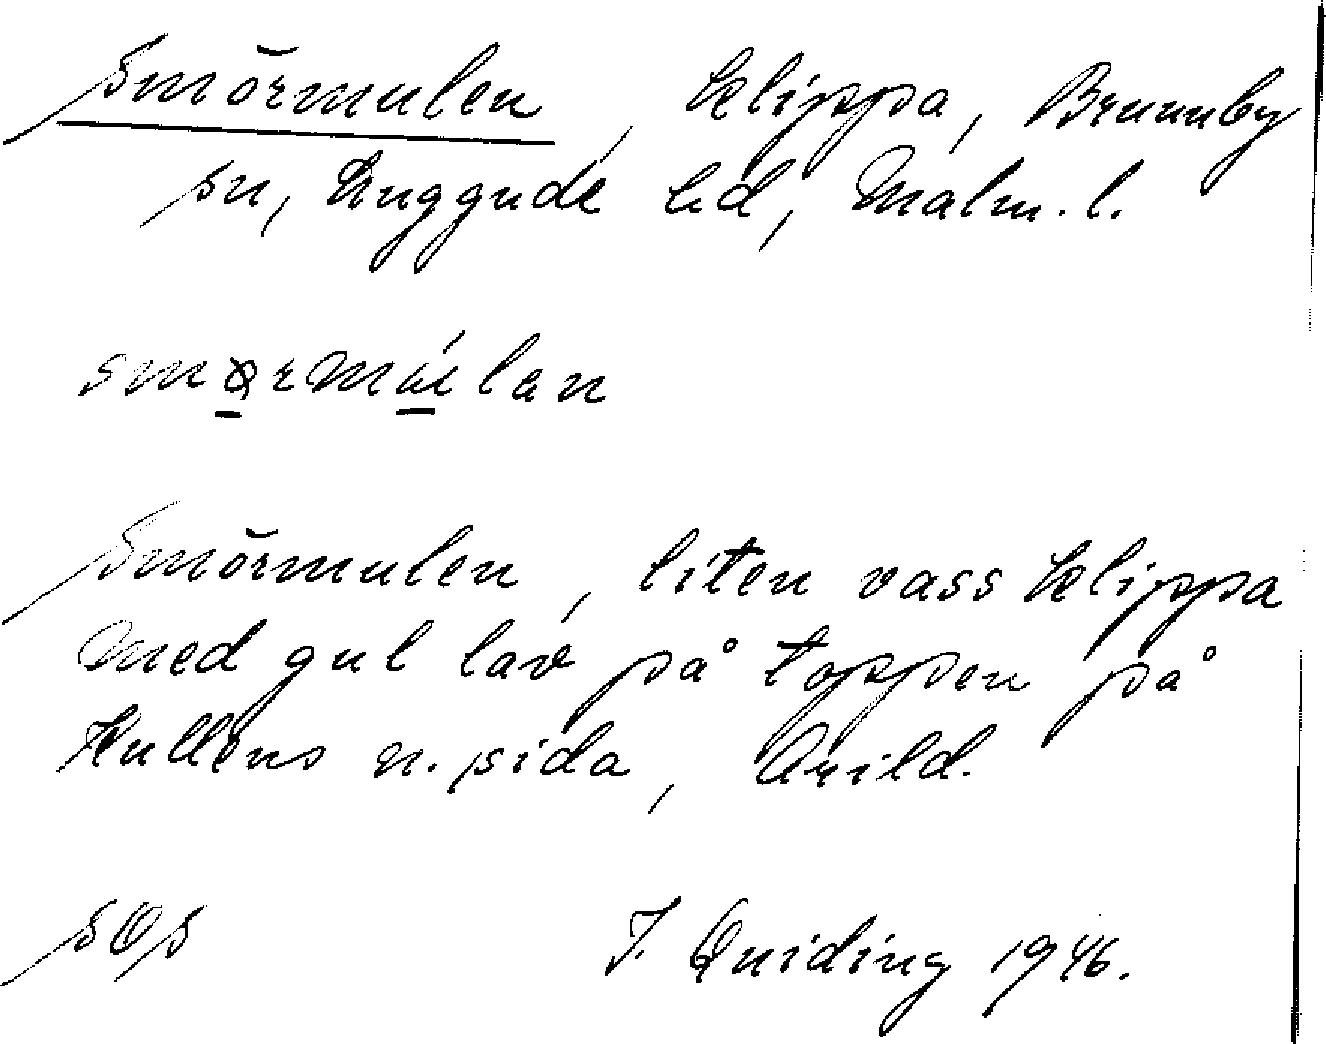 Smörmulen, klippa, Brunnby
sn, Luggude hd, Malm. l.
Smörmulen, liten vass klippa
med gul lav på toppen på
Kullens n. sida, Arild.
sOs J. Quiding 1946.